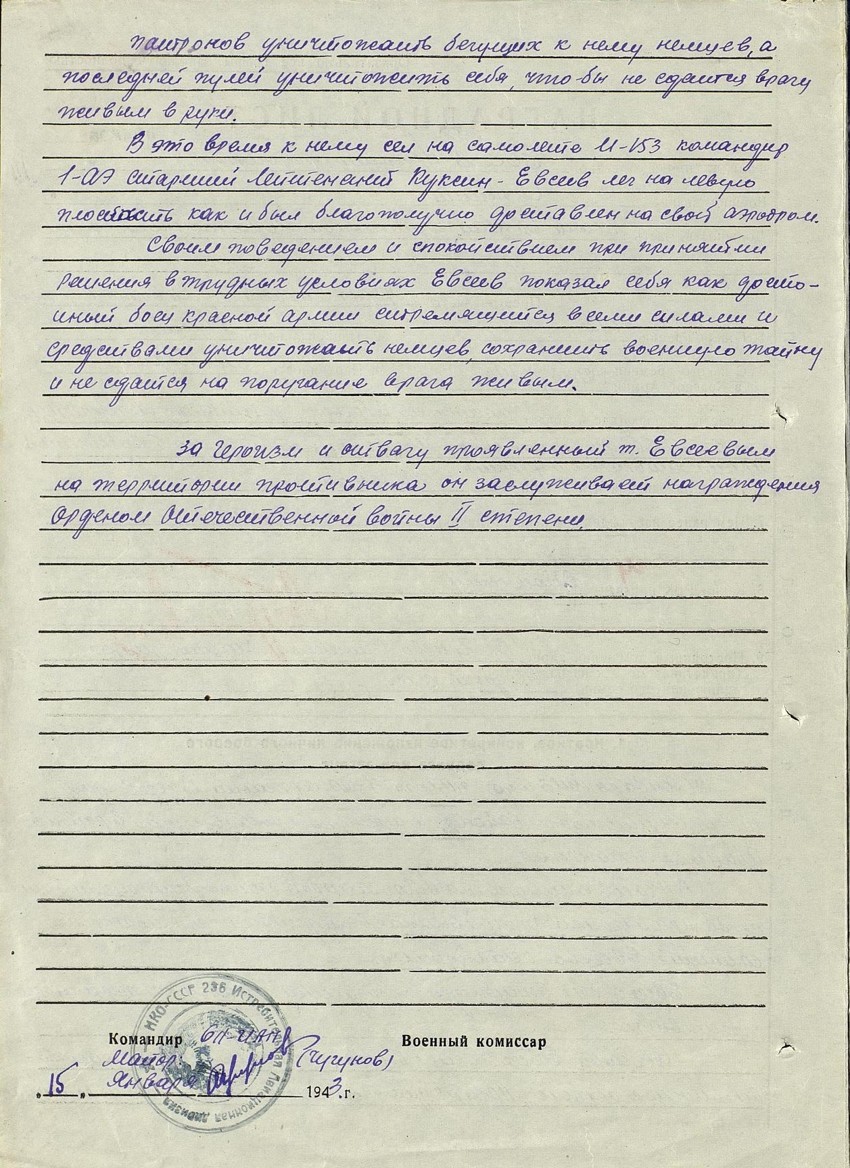 патронов уничтожать бегущих к нему немцев, а
последней пулей уничтожить себя, что-бы не сдатся врагу
живым в руки.
В это время к нему сел на самолете И-153 командир
1-АЭ старший Лейтенант Куксин - Евсеев лег на левую
плоскость как и был благополучно доставлен на свой аэродром.
Своим поведением и спокойствием при принятии
решения в трудных условиях Евсеев показал себя как досто-
иный боец красной армии стремящийся всеми силами и
средствами уничтожать немцев, сохранить военную тайну
и не сдатся на поругание врага живым.
За героизм и отвагу проявленный т. Евсеевым
на территории противника он заслуживает награждения
Орденом Отечественной войны II степени.
НКО-СССР 236 Истребительная Авиационная дивизия
Командир ИАП Военный комиссар
Майор (Чугунов)
"15" Января 1943 г.